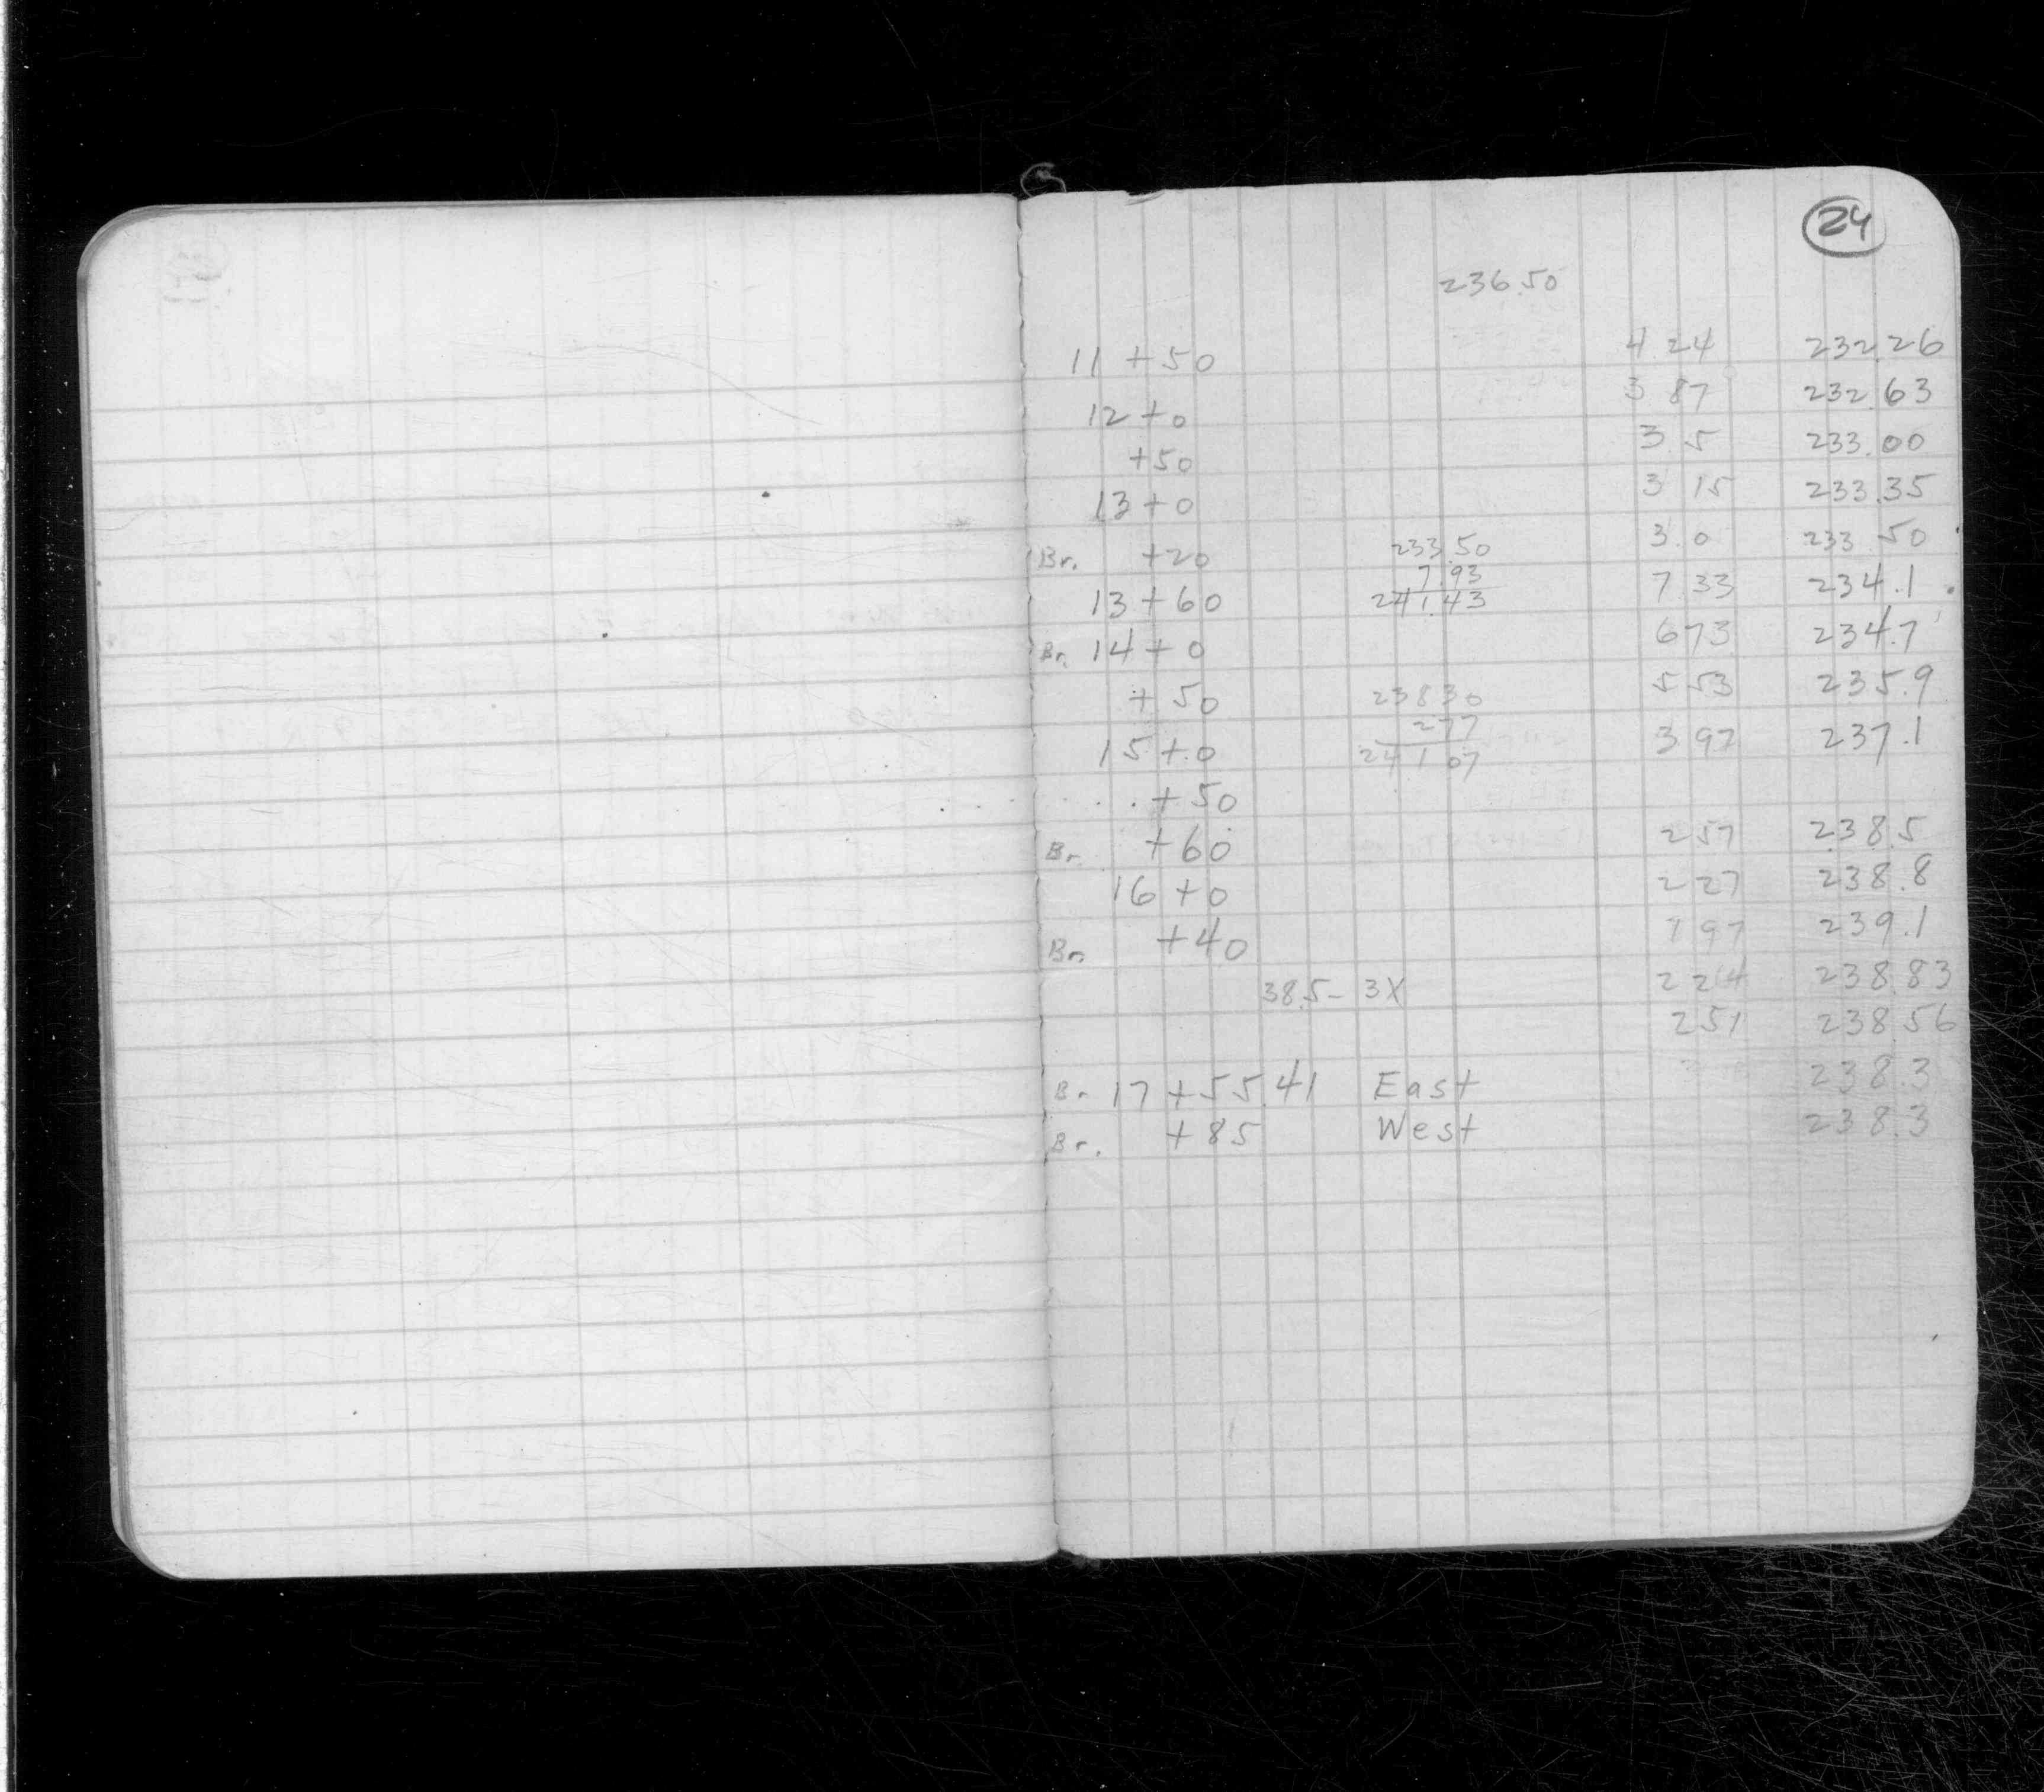 24
236.50
11 + 50 4 24 232.26
12 + 0 3 87 232.63
+ 50 3 5 233.00
13 + 0 3 15 233.35
Br. + 20 233 50 3.0 233 50
7.93
13 + 60 241.43 7 33 234.1
Br. 14 + 0 6 73 234.7
+ 50 238 30 5 53 235.9
2 77
15 + 0 241 07 3 97 237.1
+ 50
Br. + 60 2 57 238.5
16 + 0 2 27 238.8
Br. + 40 1 97 239.1
38.5 - 3X 2 24 238.83
2 51 238 56
Br 17 + 55.41 East 238.3
Br. + 85 West 238.3